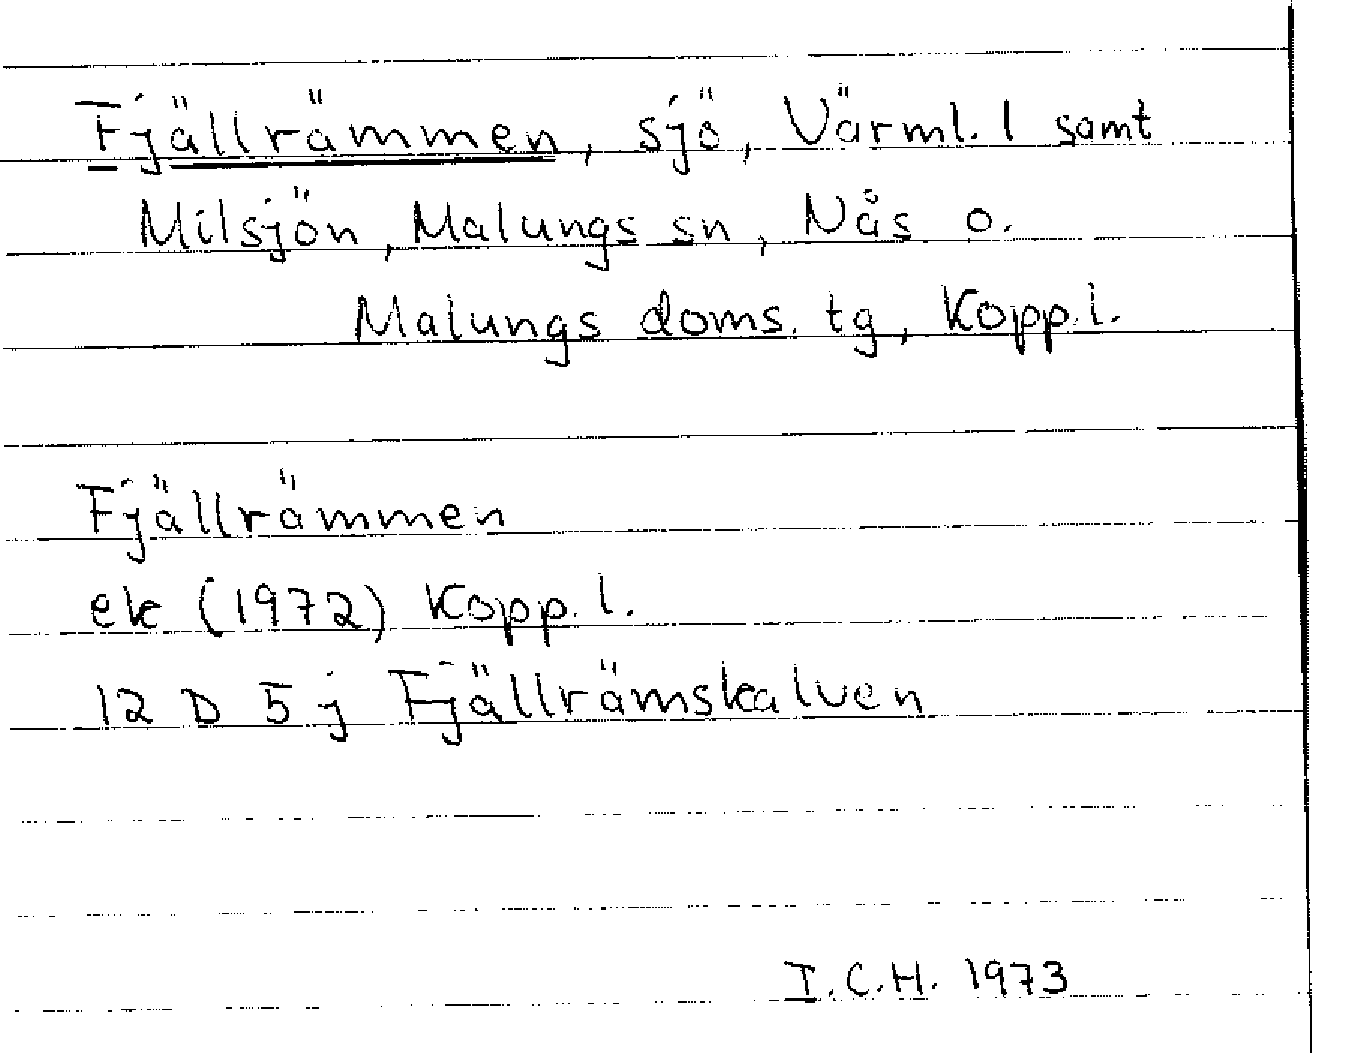 Fjällrämmen, sjö, Värml. l samt
Milsjön, Malungs sn, Nås o.
Malungs doms. tg, Kopp.l.
Fjällrämmen
ek (1972) Kopp. l.
12 D 5 j Fjällrämskalven
I.C.H. 1973